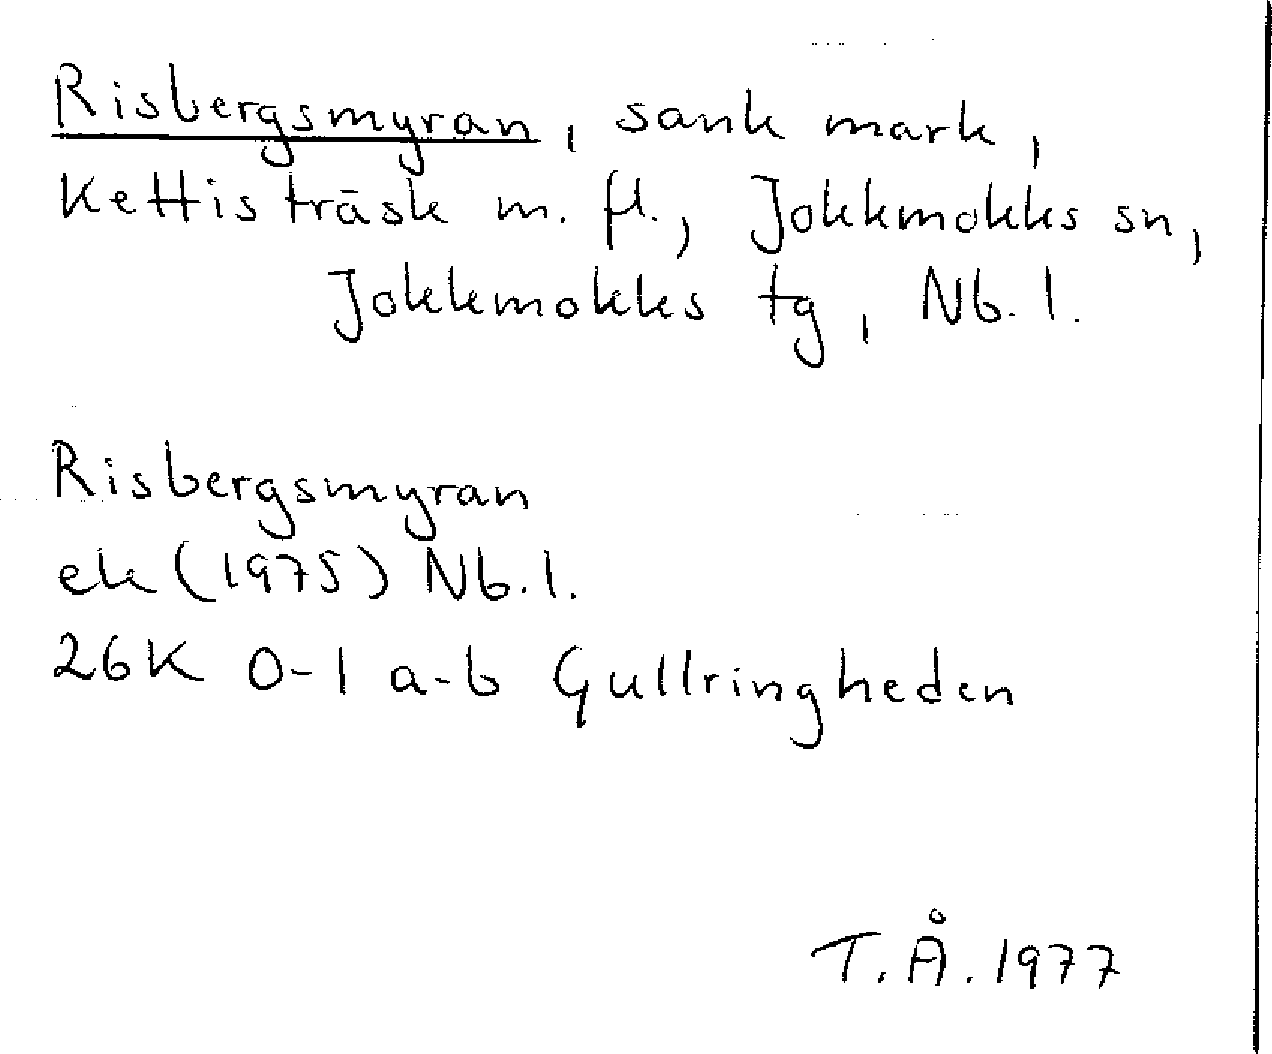 Risbergsmyran, sank mark,
Kettisträsk m. fl., Jokkmokks sn,
Jokkmokks tg, Nb. l.
Risbergsmyran
ek (1975) Nb. l.
26K 0-1 a-b Gullringheden
T. Å. 1977